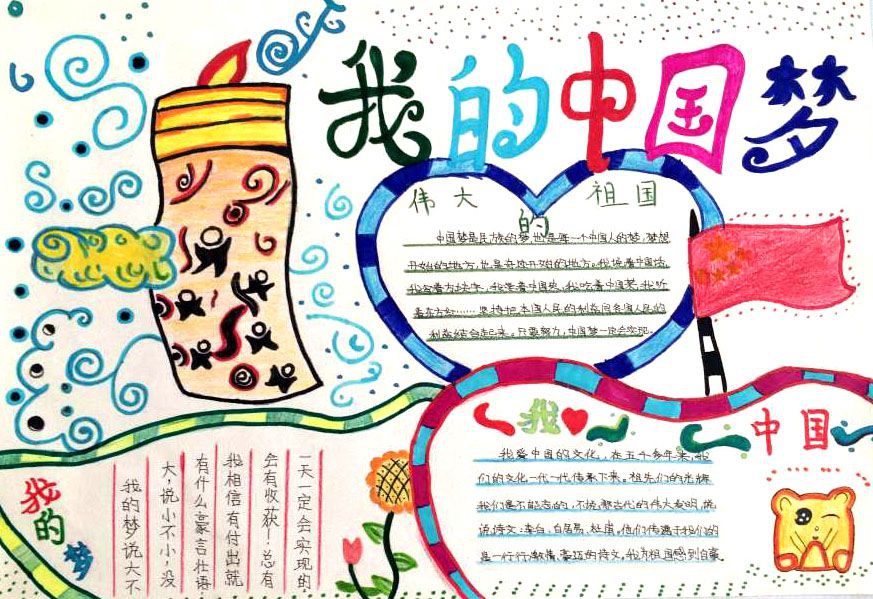 我的中国梦
伟大的祖国
中国梦是民族的梦,也是每一个中国人的梦。梦想
开始的地方,也是奇迹开始的地方。我说着中国话,
我写着方块字,我 着中国 ,我吃着中国菜,我听
着东方红……坚持把本国人民的利益同各国人民的
利益结合起来。只要努力,中国梦一定会实现。
我的梦
我的梦说大不
大,说小不小,没
有什么豪言壮语
我相信有付出就
会有收获!总有
一天一定会实现的
我 中国
我爱中国的文化。在五千多年来,我
们的文化一代一代传承下来。祖先们的光辉
我们是不能忘的,不提 古代的伟大发明,说
说诗文:李白,白居易,杜甫,他们传递于我们的
是一行行激情,豪迈的诗文。我为祖国感到自豪